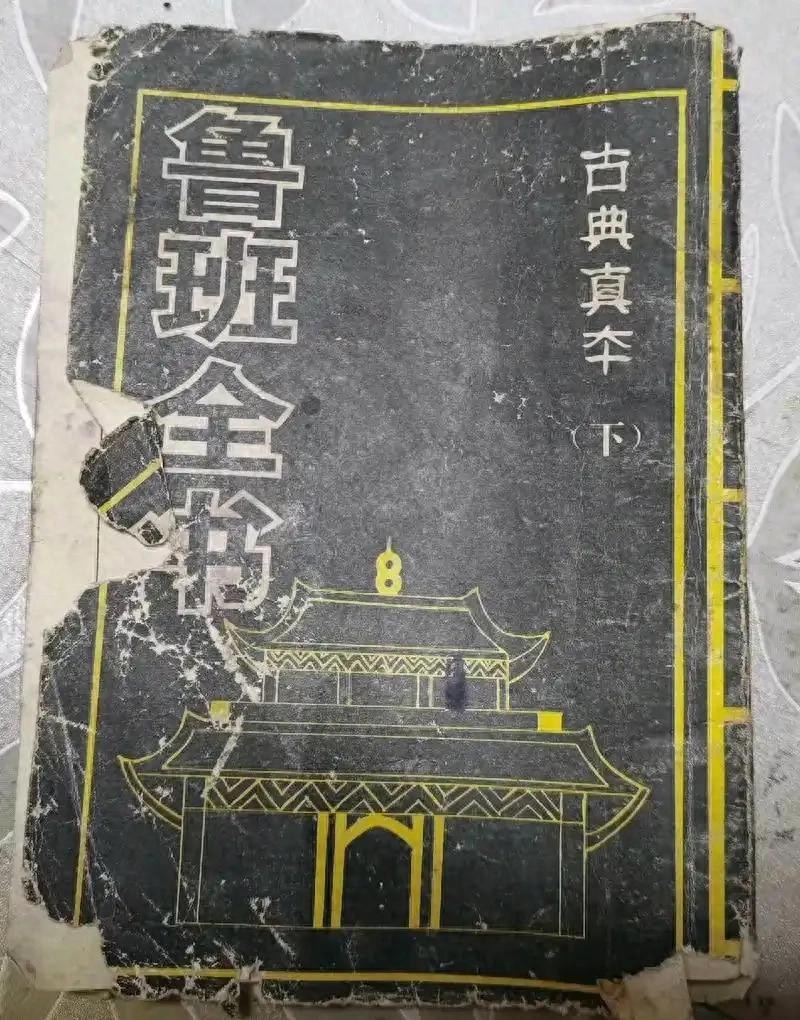 古典真本
（下）
鲁班全书